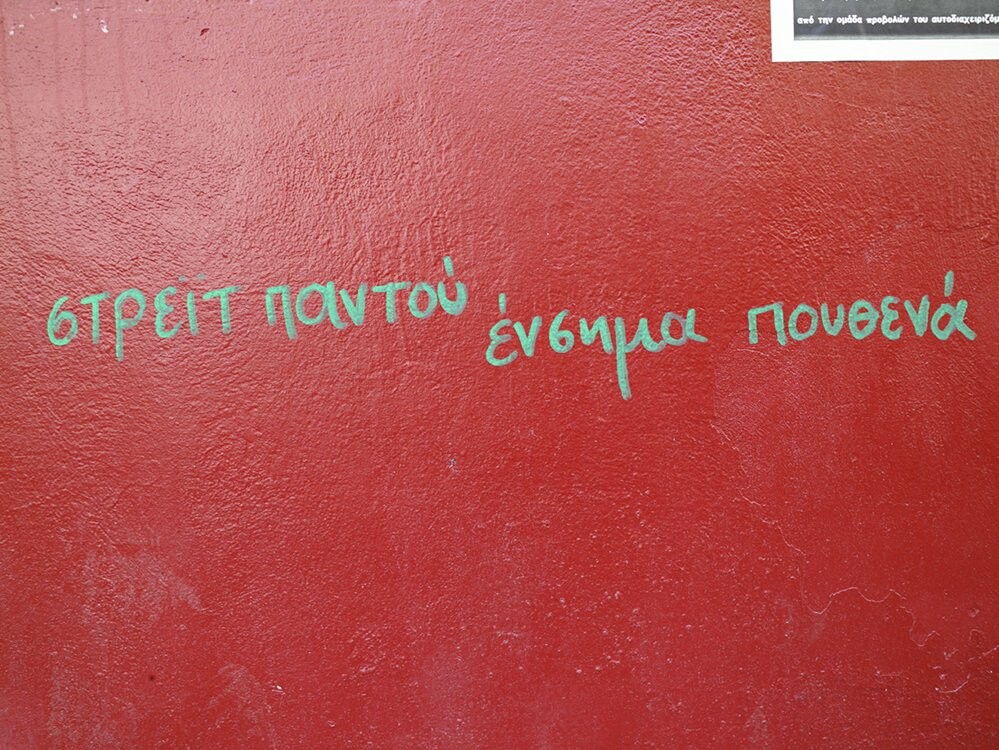 από την ομάδα προβολών του αυτοδιαχειριζόμ
στρεϊτ παντού ένσημα πουθενά